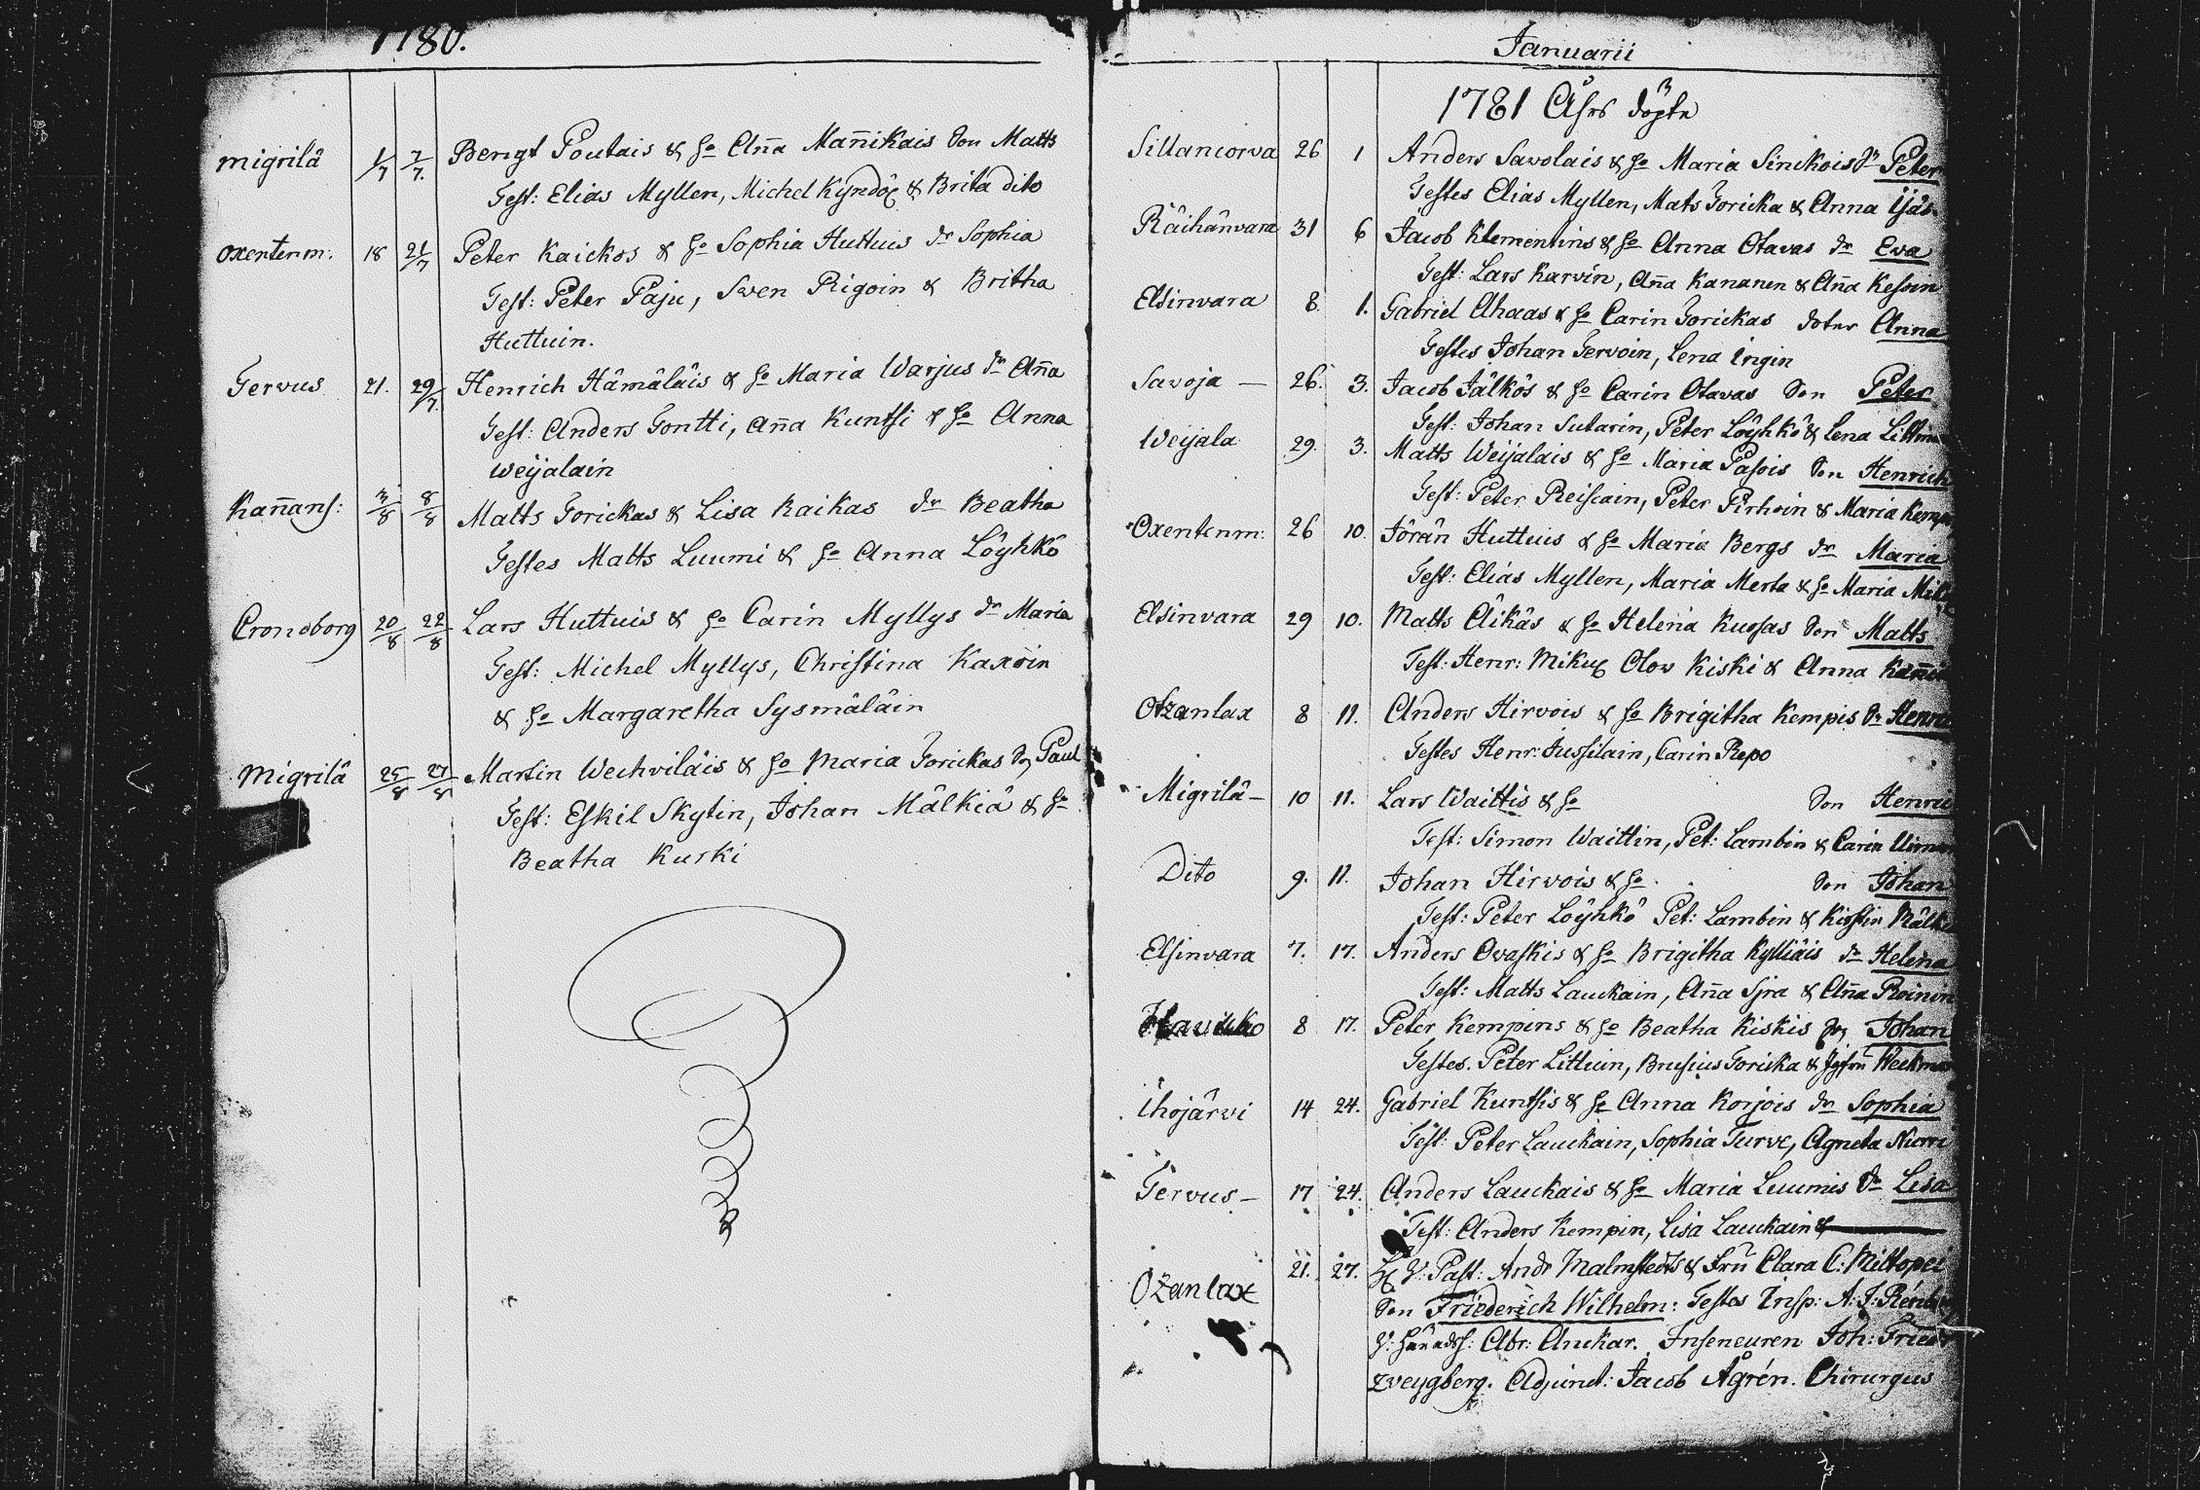 1780.
Migrilä 1/7 7/7. Bengt Poutais & ho Aña Mañikais Son Matts
Test: Elias Myllen, Michel Kyndöc & Brita dito
Oxentenm: 18 21/7 Peter Kaickos & ho Sophia Huttuis dr Sophia
Test: Peter Paju, Swen Pigoin & Britha
Huttuin.
Tervus 21. 29/7. Henrich Hämäläis & ho Maria Warjus dr Aña
Test: Anders Tontti, Aña Kuntsi & ho Anna
Weijalain
Kañans: 3/8 8/8 Matts Torickas & Lisa Kaikas dr Beatha
Testes Matts Luumi & ho Anna Löyhkö
Cronoborg 20/8 22/8 Lars Huttuis & ho Carin Myllys dr Maria
Test: Michel Myllys, Christina Kaxoin
& ho Margaretha Sysmäläin
Migrilä 25/8 27/8 Martin Wechviläis & ho Maria Torickas Son Paul
Test: Eskil Skytin, Johan Mälkiä & ho
Beatha Kurki
Januarii
1781 Åhrs döpte
Sillancorva 26 1 Anders Savolais & ho Maria Sinckois Sn Peter
Testes Elias Myllen, Mats Toricka & Anna Ijäs
Räihänvara 31 6 Jacob Klementins & ho Anna Otavas dr Eva
Test: Lars Karvin, Aña Kananen & Aña Kesoin
Elsinvara 8. 1. Gabriel Ahaas & ho Carin Torickas doter Anna
Testes Johan Tervoin, Lena Ingin
Savoja — 26. 3. Jacob Jälkös & ho Carin Otavas Son Peter
Test: Johan Sutarin, Peter Löyhkö & Lena
Weijala 29. 3. Matts Weijalais & ho Maria Pasois Son Henrich
Test: Peter Reiscain, Peter Pirhoin & Maria
Oxentenm: 26 10. Jörän Huttuis & ho Maria Bergs dr Maria
Test: Elias Myllen, Maria Merta & ho Maria
Elsinvara 29 10. Matts Äikäs & ho Helena Kuosas Son Matts
Test: Henr: Mikuc Olow Kiski & Anna
Otzanlax 8 11. Anders Hirvois & ho Brigitha Kempis
Testes Henr: Jussilain, Carin Repo
Migrilä – 10 11. Lars Waittis & ho Son
Test: Simon Waittin, Pet: Lambin & Carin
Dito 9. 11. Johan Hirvois & ho Son Johan
Test: Peter Löyhkö Pet: Lambin & Kirstin
Elsinvara 7. 17. Anders Ovaskis & ho Brigitha Kylliäis dr Helena
Test: Matts Lauckain, Aña Sjra & Aña Roinin
8 17. Peter Kempins & ho Beatha Kiskis Son Johan
Testes. Peter Littuin, Brusius Toricka &
Ihojärvi 14 24. Gabriel Kuntsis & ho Anna Korjois dr Sophia
Test: Peter Lauckain, Sophia Turve, Agneta
Tervus – 17 24. Anders Lauckais & ho Maria Luumis dr Lisa
Test: Anders Kempin, Lisa Lauckain &
Ozanlax 21. 27. V: Past: Andr Malmstedts & Fru Clara C: Mittopei
Son Friederich Wilhelm: Testes Insp: A: J:
V: häradsh: Abr: Anckar. Inseneuren Joh: Friedr
Zveygberg. Adjunct: Jacob Ågrén. Chirurgus